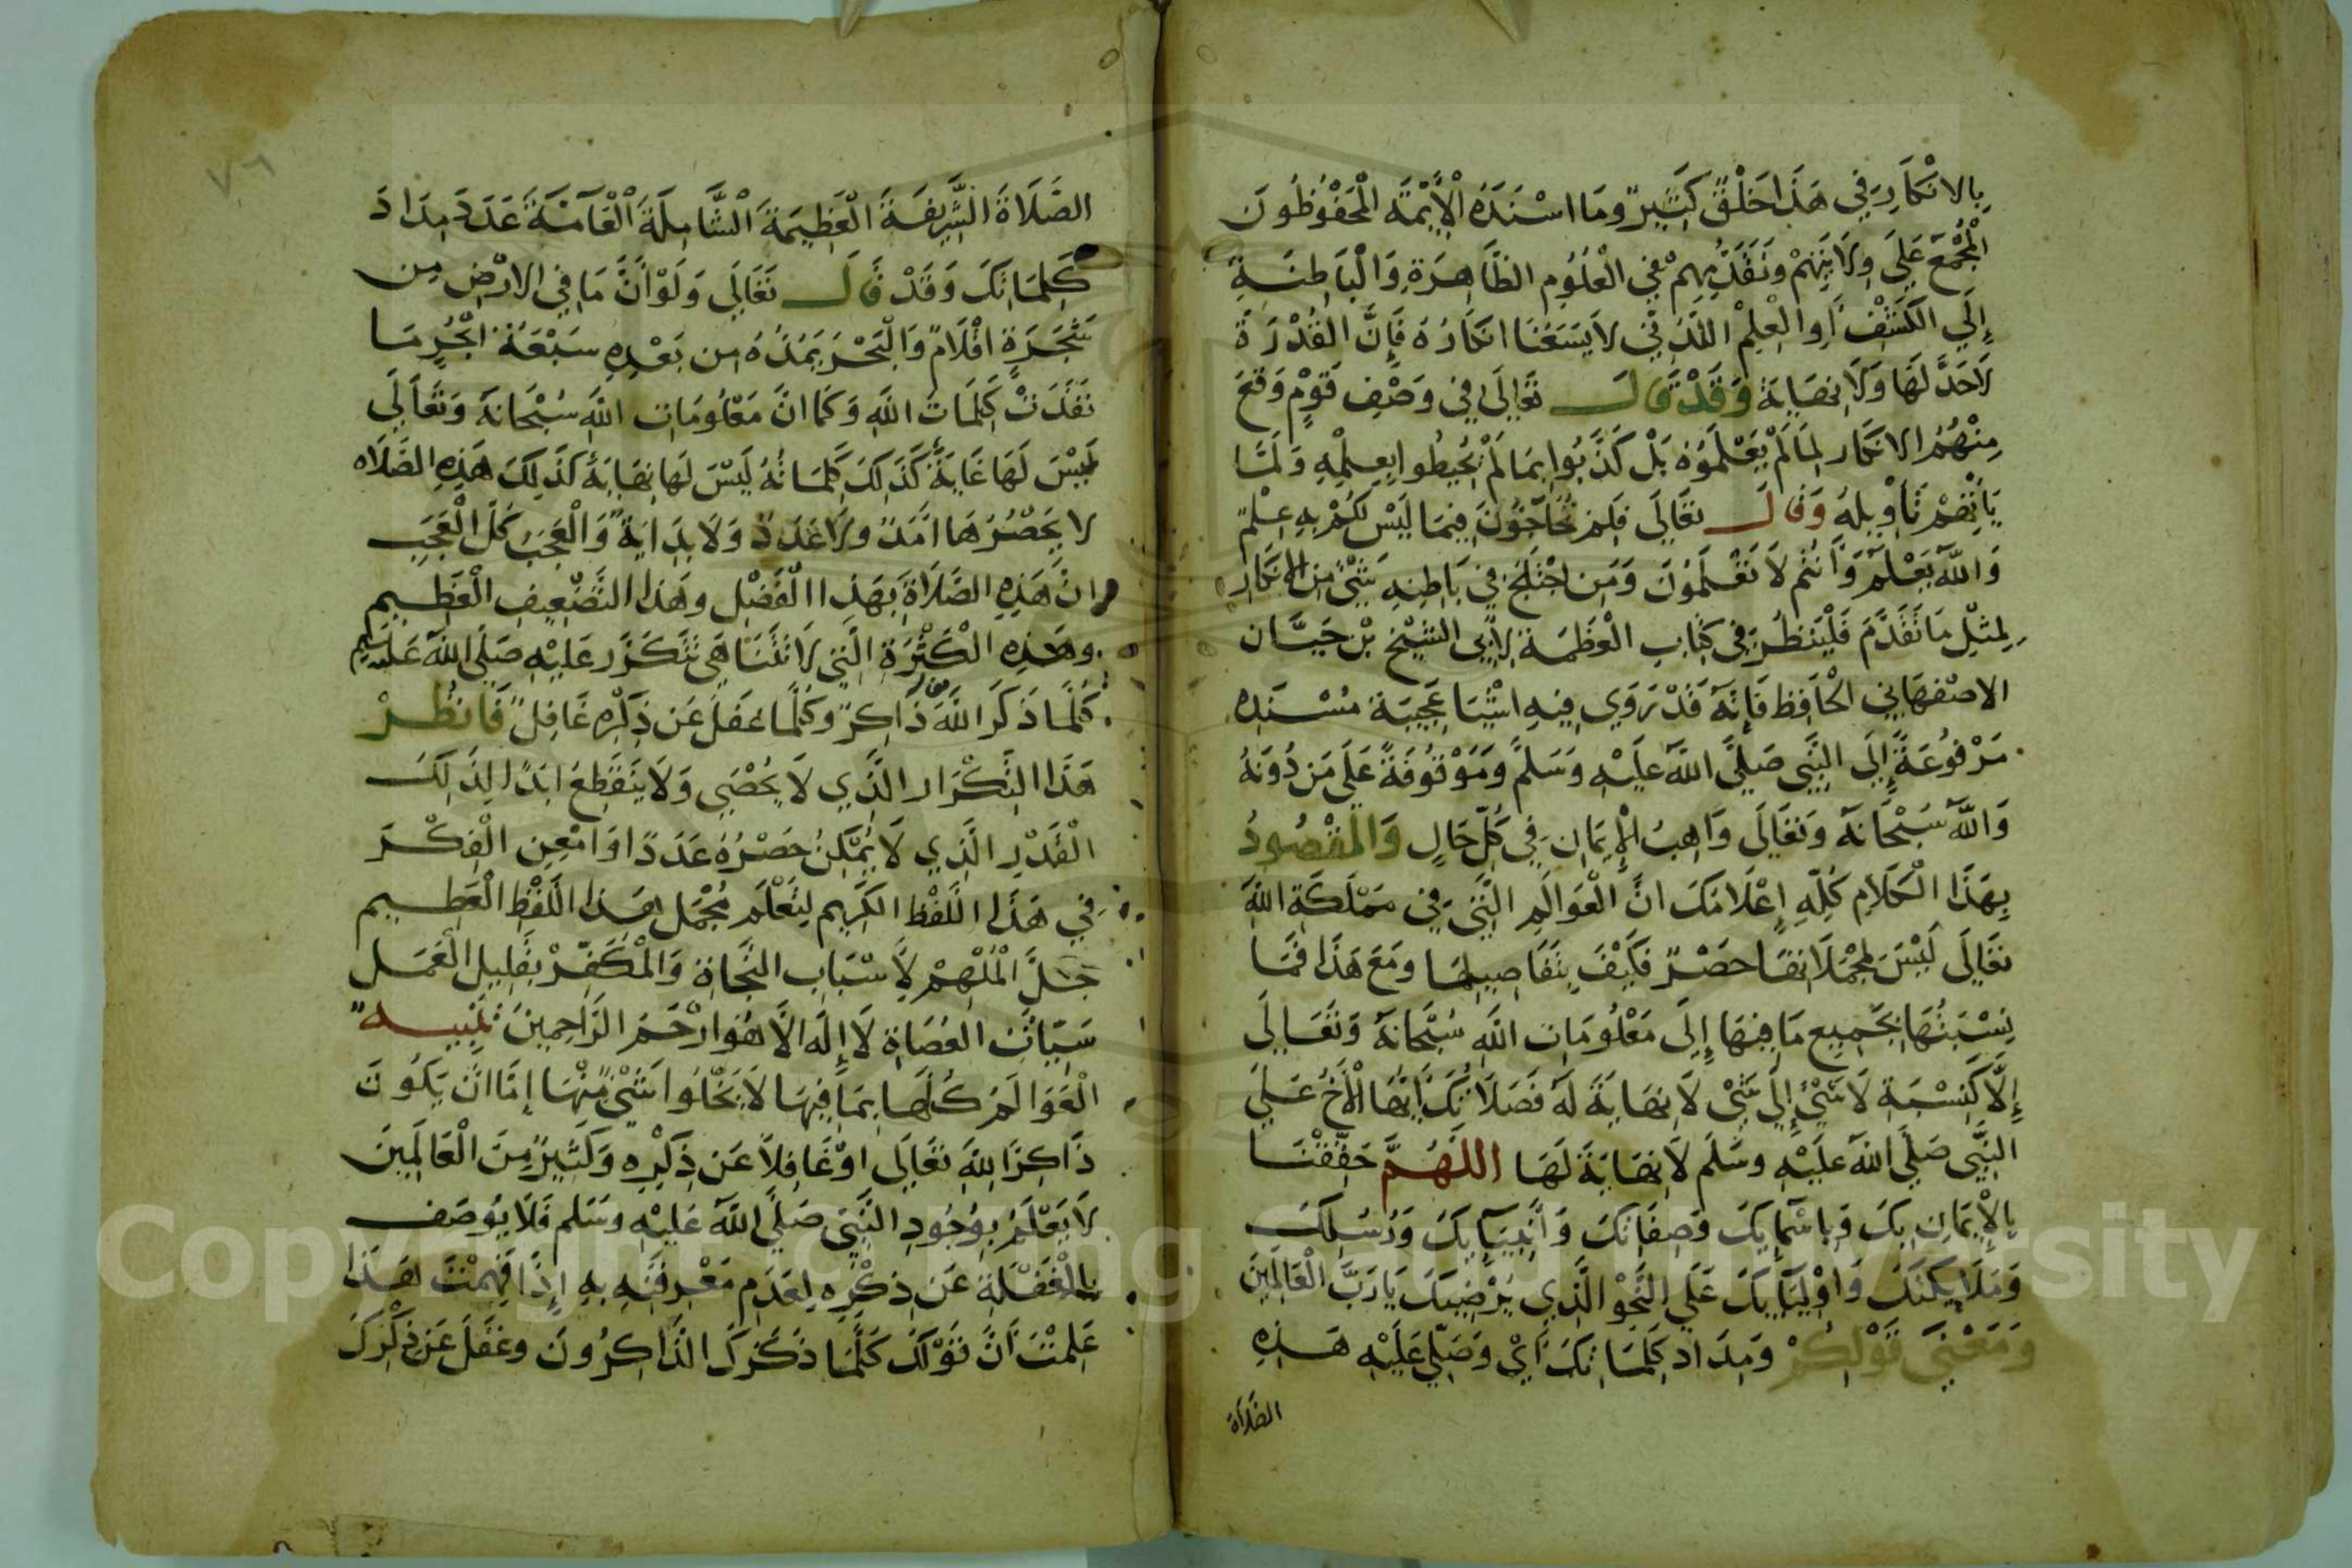 بِالانْكَارِ فِي هَذَا خَلْقٌ كَثِيرٌ وَمَا اسْنَدَهُ الْأَئِمَّةُ الْمَحْفُوظُونَ
الْمُجْمَعَ عَلَى وِلَايَتِهِمْ وَتَقَدُّمِهِمْ فِي الْعُلُومِ الظَّاهِرَةِ وَالْبَاطِنَةِ
إِلَى الْكَشْفِ أَوِ الْعِلْمِ اللَّدُنِّي لَا يَسَعُنَا انكَارُهُ فَإِنَّ الْقُدْرَةَ
لَا حَدَّ لَهَا وَلَا نِهَايَةَ وَقَدْ قَالَ تَعَالَى فِي وَصْفِ قَوْمٍ وَقَعَ
مِنْهُمُ الانكَار لِمَا لَمْ يَعْلَمُوهُ بَلْ كَذَّبُوا بِمَا لَمْ يُحِيطُوا بِعِلْمِهِ وَلَمَّا
يَأْتِهِمْ تَأْوِيلُهُ وَقَالَ تعَالَى فَلِمَ تُحَاجُّونَ فِيمَا لَيْسَ لَكُمْ بِهِ عِلْمٌ
وَاللَّهُ يَعْلَمُ وَأَنتُم لَا تَعْلَمُونَ وَمَنِ اخْتَلَجَ فِي بَاطِنِهِ شَيْءٌ مِنَ الانكَارِ
لِمِثْلِ مَا تَقَدَّمَ فَلْيَنْظُرْ فِي كِتَابِ الْعَظَمَةِ لِأَبِي الشَّيْخِ بْنِ حَيَّان
الاصْفهَانِي الْحَافِظ فَإِنَّهُ قَدْ رَوَى فِيهِ اشْيَا عَجِيبَة مُسْنَدِه
مَرْفُوعَةً إِلَى النَّبِي صَلَّى اللَّهُ عَلَيْهِ وَسَلَّمَ وَمَوْقُوفَةً عَلَى مَن دُونَهُ
وَاللَّهُ سُبْحَانَهُ وَتَعَالَى وَاهِبُ الْإِيمَانِ فِي كُلِّ حَالٍ وَالْمَقْصُودُ
بِهَذَا الْكَلَامِ كُلِّهِ إِعْلَامُكَ انَّ الْعَوَالَمِ الَّتِي فِي مَمْلَكَةِ اللَّهِ
تعَالَى لَيْسَ لِمُجْمَلَاتهَا حَصْرٌ فَكَيْفَ بِتَفَاصِيلِهَا وَمَعَ هَذَا فَمَا
نِسْبَتُهَا بِجَمِيعِ مَا فِيهَا إِلَى مَعْلُومَاتِ اللَّهِ سُبْحَانَهُ وَتَعَالَى
إِلَّا كَنِسْبَةِ لَا شَيْءَ إِلَى شَيْءٍ لَا نِهَايَةَ لَهُ فَصَلَاتُكَ ايُّهَا الْأَخُ عَلَى
النَّبِي صَلَّى اللَّهُ عَلَيْهِ وسَلَّمَ لَا نِهَايَةَ لَهَا اللَّهُمَّ حَقِّقْنَا
بِالْإِيمَانِ بِكَ وَبِاسْمَائِكَ وَصِفَاتِكَ وَأَنْبِيَائِكَ وَرُسُلِكَ
وَمَلَايِكَتِكَ وَاوْلِيَائِكَ عَلَى النَّحْوِ الَّذِي يُرْضِيكَ يَا رَبَّ الْعَالَمِينَ
وَمَعْنَى قَوْلِكُمْ وَمِدَاد كَلِمَاتِكَ أَيْ وَصَلِّي عَلَيْهِ هَذِهِ
الصَّلَاةَ
٧٦
الصَّلَاةَ الشَّرِيفَةَ الْعَظِيمَةَ الشَّامِلَةَ الْعَامَّةَ عَدَدَ مِدَادَ
كَلِمَاتِكَ وَقَدْ قَالَ تَعَالَى وَلَوْ أَنَّ مَا فِي الارْضِ مِن
شَجَرَةٍ اقْلَامٌ وَالْبَحْرُ يَمُدُّهُ مِن بَعْدِهِ سَبْعَةُ ابْحُرٍ مَا
نَفِدَتْ كَلِمَاتُ اللَّهِ وَكَمَا انَّ مَعْلُومَاتِ اللَّهِ سُبْحَانَهُ وَتَعَالَى
لَيْسَ لَهَا غَايَةٌ كَذَلِكَ كَلِمَاتُهُ لَيْسَ لَهَا نِهَايَةٌ كَذَلِكَ هَذِهِ الصَّلَاه
لَا يَحْصُرُهَا امَدٌ وَلَا عَدَدٌ وَلَا بِدَايَةٌ وَالْعَجَبُ كُلَّ الْعَجَبِ
انَّ هَذِهِ الصَّلَاةَ بِهَذَا الْفَضْلِ وَهَذَا التَّضْعِيفِ الْعَظِيمِ
وَهَذِهِ الْكَثْرَةِ الَّتِي لَا تَتَنَاهَى تَتَكَرَّر عَلَيْهِ صَلَّى اللَّهُ عَلَيْهِ وَسَلَّمَ
كُلَّمَا ذَكَرَ اللَّهَ ذَاكِرٌ وَكُلَّمَا غَفَلَ عَن ذِكْرِهِ غَافِلٌ فَانظُرْ
هَذَا التِّكْرَار الَّذِي لَا يُحْصَى وَلَا يَنْقَطِعُ ابَدًا لِذَلِكَ
الْقَدْرِ الَّذِي لَا يُمْكِنُ حَصْرُهُ عَدَدًا وَامْعِنِ الْفِكْرَ
فِي هَذَا اللَّفْظِ الْكَرِيمِ لِتَعْلَمَ مُجْمَل هَذَا اللَّفْظِ الْعَظِيمِ
جَلَّ الْمُلْهِمُ لِأَسْبَابِ النَّجَاةِ وَالْمُكَفِّرُ بِقَلِيلِ الْعَمَلِ
سَيِّئَاتِ العُصَاةِ لَا إِلَهَ الَّا هُوَ ارْحَمُ الرَّاحِمِينَ تَنْبِيه
الْعَوَالَمُ كُلُّهَا بِمَا فِيهَا لَا يَخْلُوا شَيْءٌ مِنْهَا إِمَّا انْ يَكُونَ
ذَاكِرًا للَّهِ تعَالَى اوْ غَافِلًا عَن ذِكْرِهِ وَكَثِيرٌ مِنَ الْعَالَمِينَ
لَا يَعْلَمُ بِوُجُودِ النَّبِي صَلَّى اللَّهُ عَلَيْهِ وَسَلَّمَ فَلَا يُوصَف
بِالْغَفْلَةِ عَن ذِكْرِهِ لِعَدَمِ مَعْرِفَتِهِ بِهِ إِذَا فَهِمْتَ هَذَا
عَلِمْتَ أَنَّ قَوْلَكَ كُلَّمَا ذَكَرَكَ الذَّاكِرُونَ وَغَفَلَ عَن ذِكْرِكَ
Copyright © King Saud University